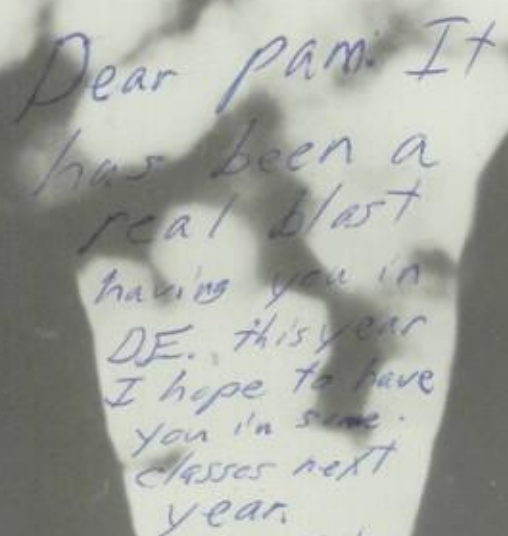 Dear Pam. It
has been a
real blast
having you in
D.E. this year
I hope to have
you in some.
classes next
year.